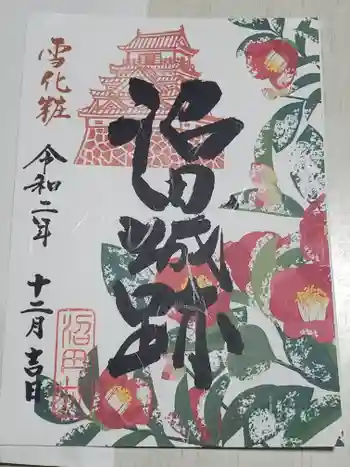 雪化粧
令和二年
十二月吉日
沼田城跡
沼田